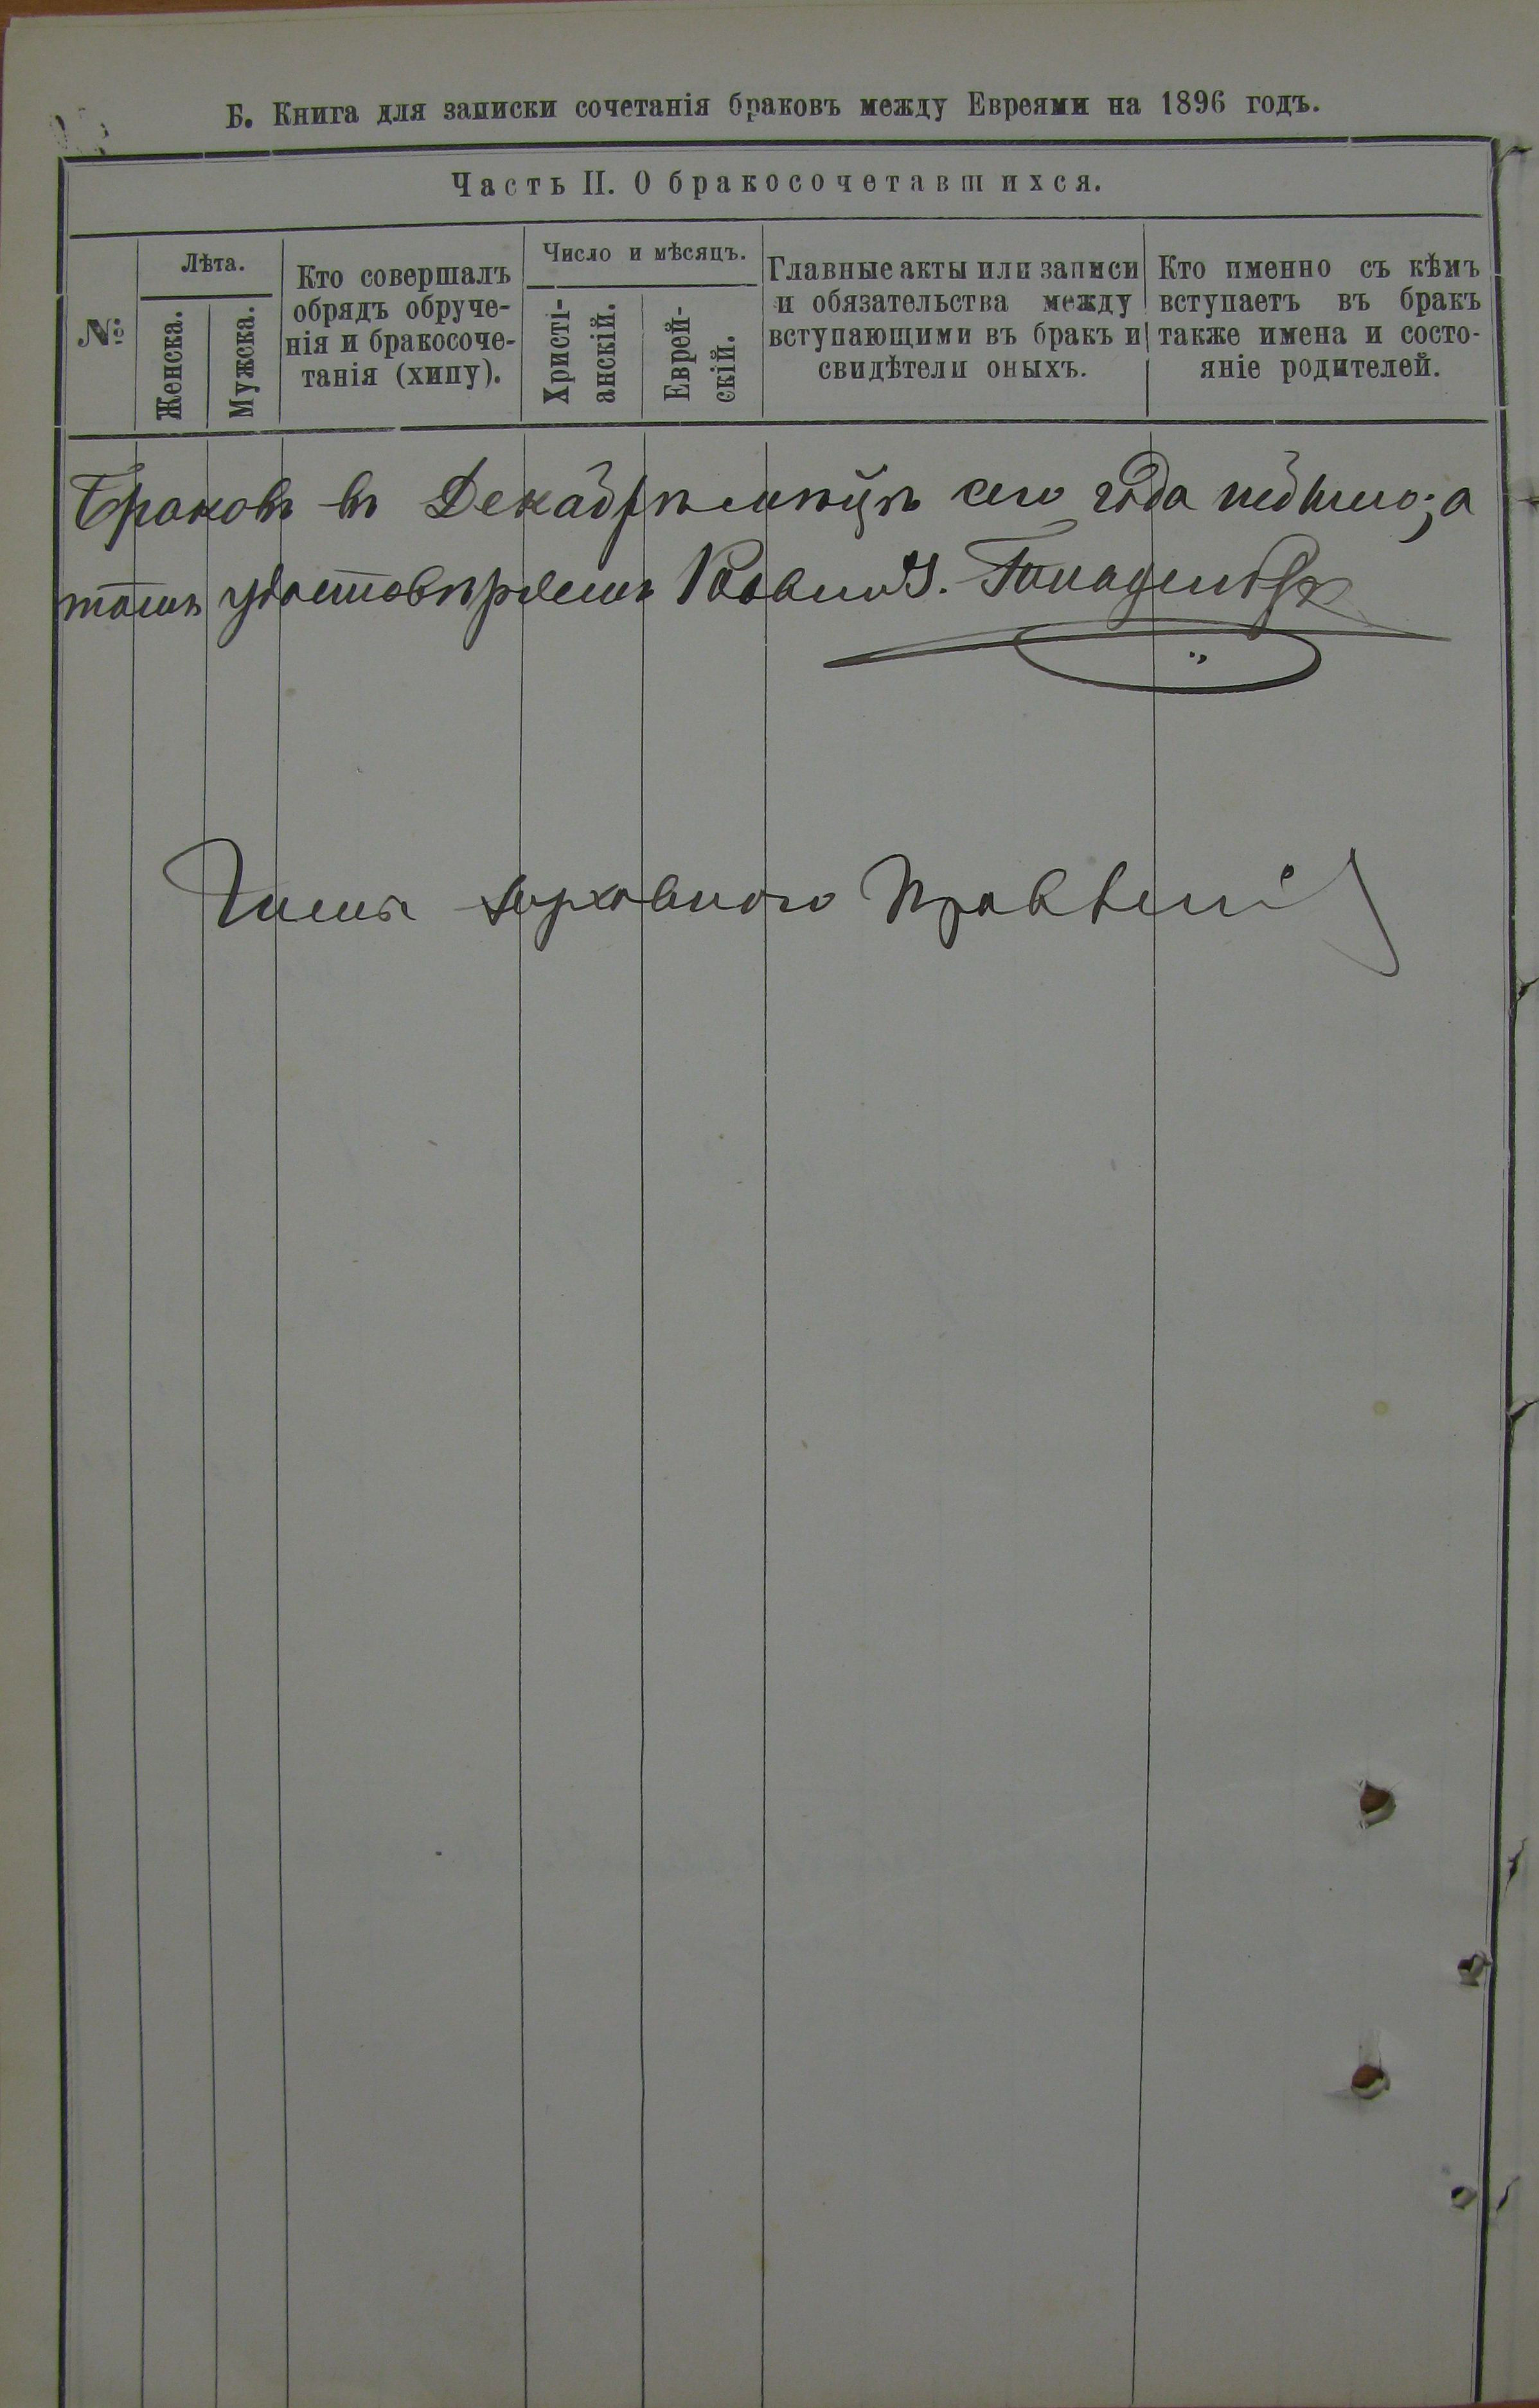 Б. Книга для записки сочетанія браковъ между Евреями на 1896 годъ.
Часть II. О бракосочетавшихся.
№
Лѣта.
Женска.
Мужска.
Кто совершалъ
обрядъ обруче-
нія и бракосоче-
танія (хипу).
Число и мѣсяцъ.
Христі-
анскій.
Еврей-
скій.
Главные акты или записи
и обязательства между
вступающими въ бракъ и
свидѣтели оныхъ.
Кто именно съ кѣмъ
вступаетъ въ бракъ
также имена и состо-
яніе родителей.
Браковъ въ Декабрѣ мѣцѣ сего года небыло; в
томъ удостовѣряемъ Раввинъ
Члены духовного Правленія